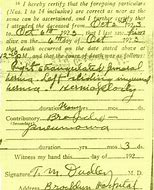 I hereby certify that the foregoing particulars
(Nos. 1 to 14 inclusive) are correct as near as the
same can be ascertained, and I further certify that
I attended the deceased from Oct 2 1923
to Oct 6 1923, that I last saw
alive on the 6 day of Oct 1923
that death occurred on the date stated above at
and that the cause of death was as follows:
Right strangulated femoral
hernia, left sliding inguinal
hernia - Herniaplasty
duration
Contributory Broncho
pneumonia
duration
Witness my hand this day of 192
Signature T. M. Dudley M. D.
Address Brooklyn Hospital